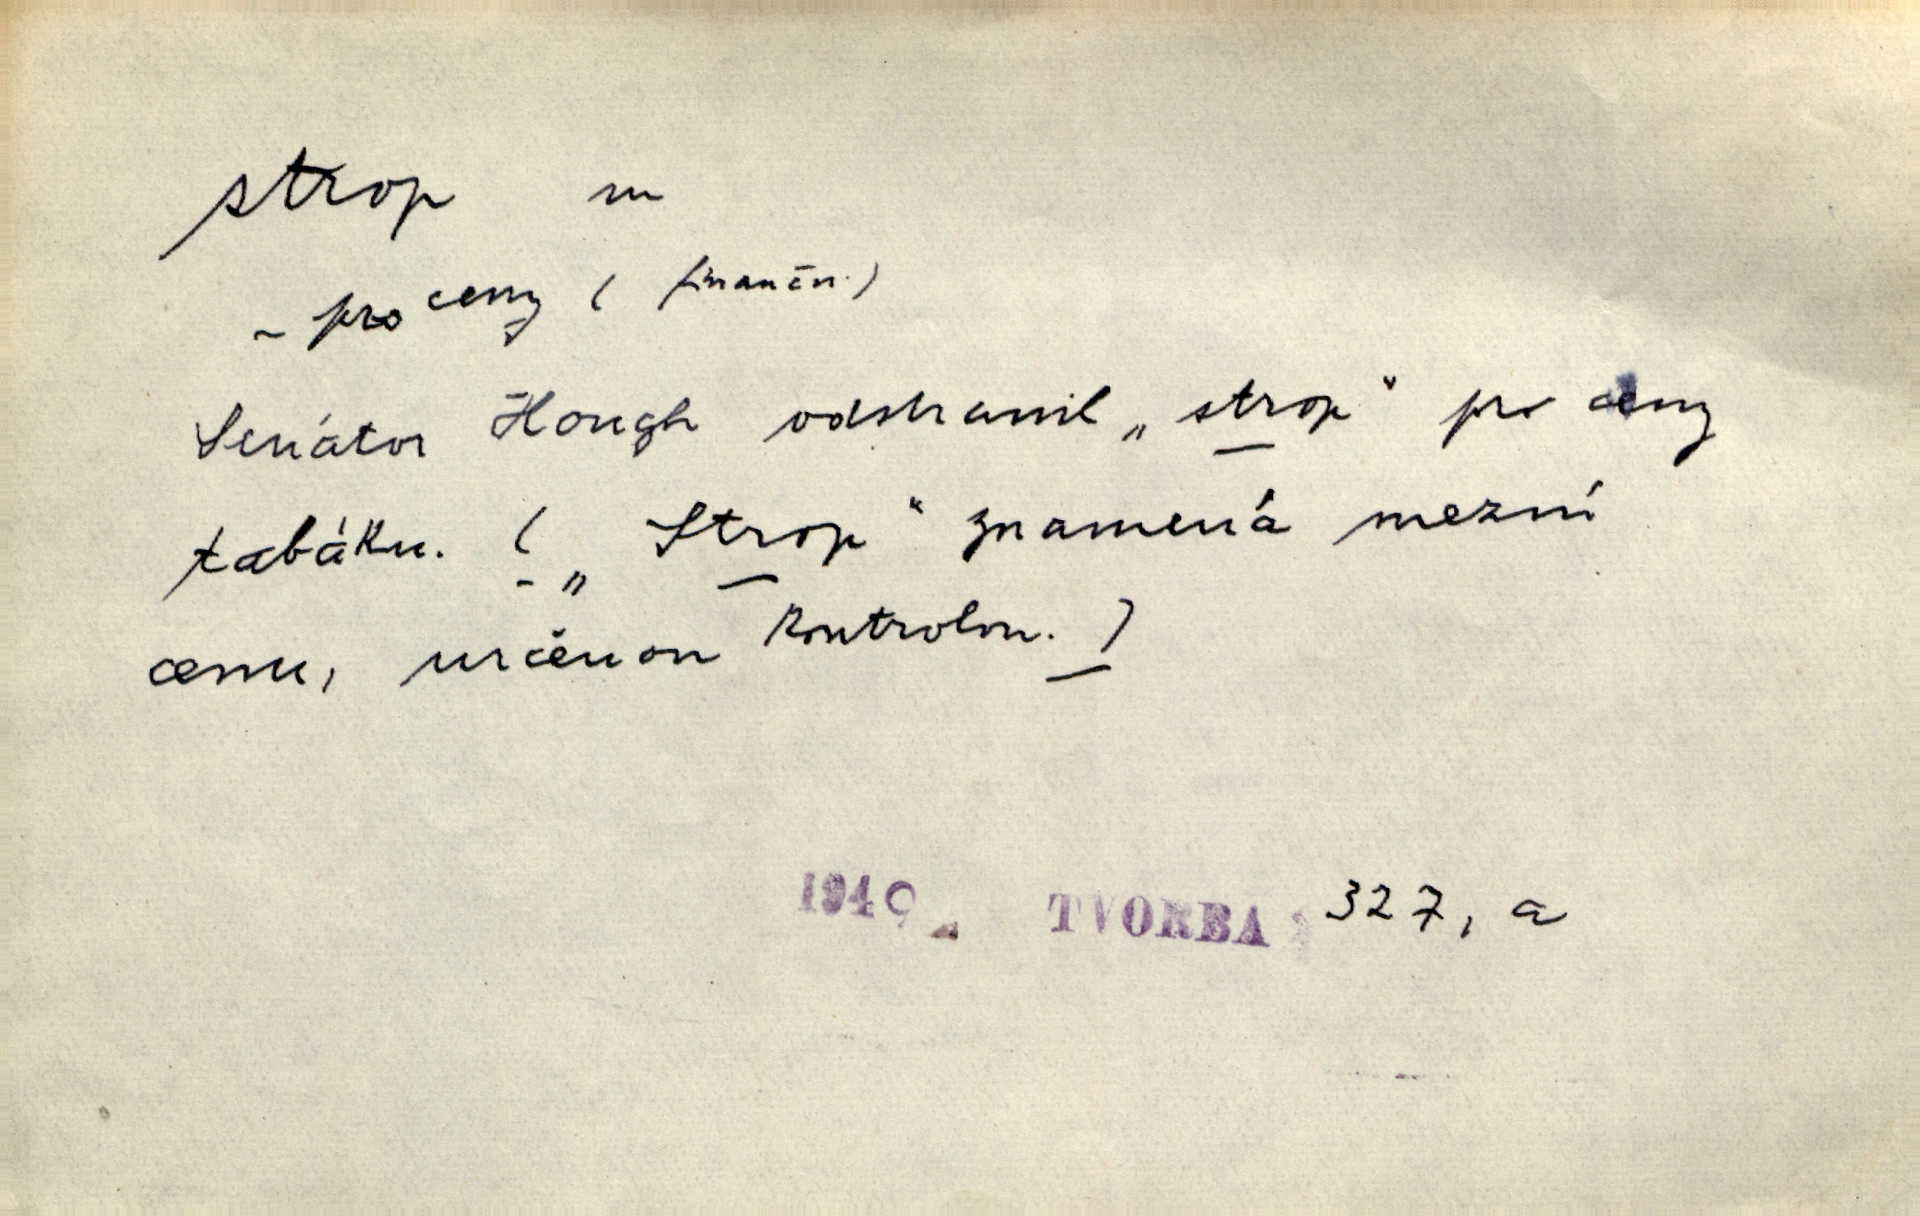 strop m
- pro ceny ( finančn.)
Senátor Hough odstranil „strop“ pro ceny
tabáku. („Strop“ znamená mezní
cenu, určenou kontrolou.)
1949 TVORBA 327, a